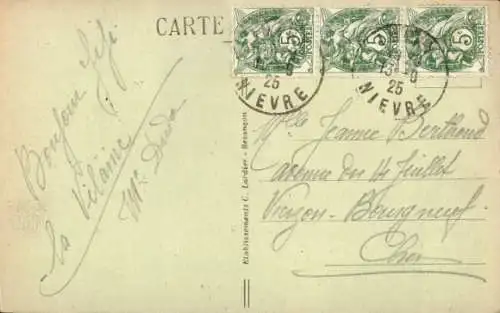 CARTE
5
5
5
25
NIEVRE
25
NIEVRE
Bonjour Gigi
la Vilaine
Etablissements C. Lardier - Besançon
Mlle Jeanne Berthond
avenue du 14 Juillet
Vierzon-Bourgneuf
Cher